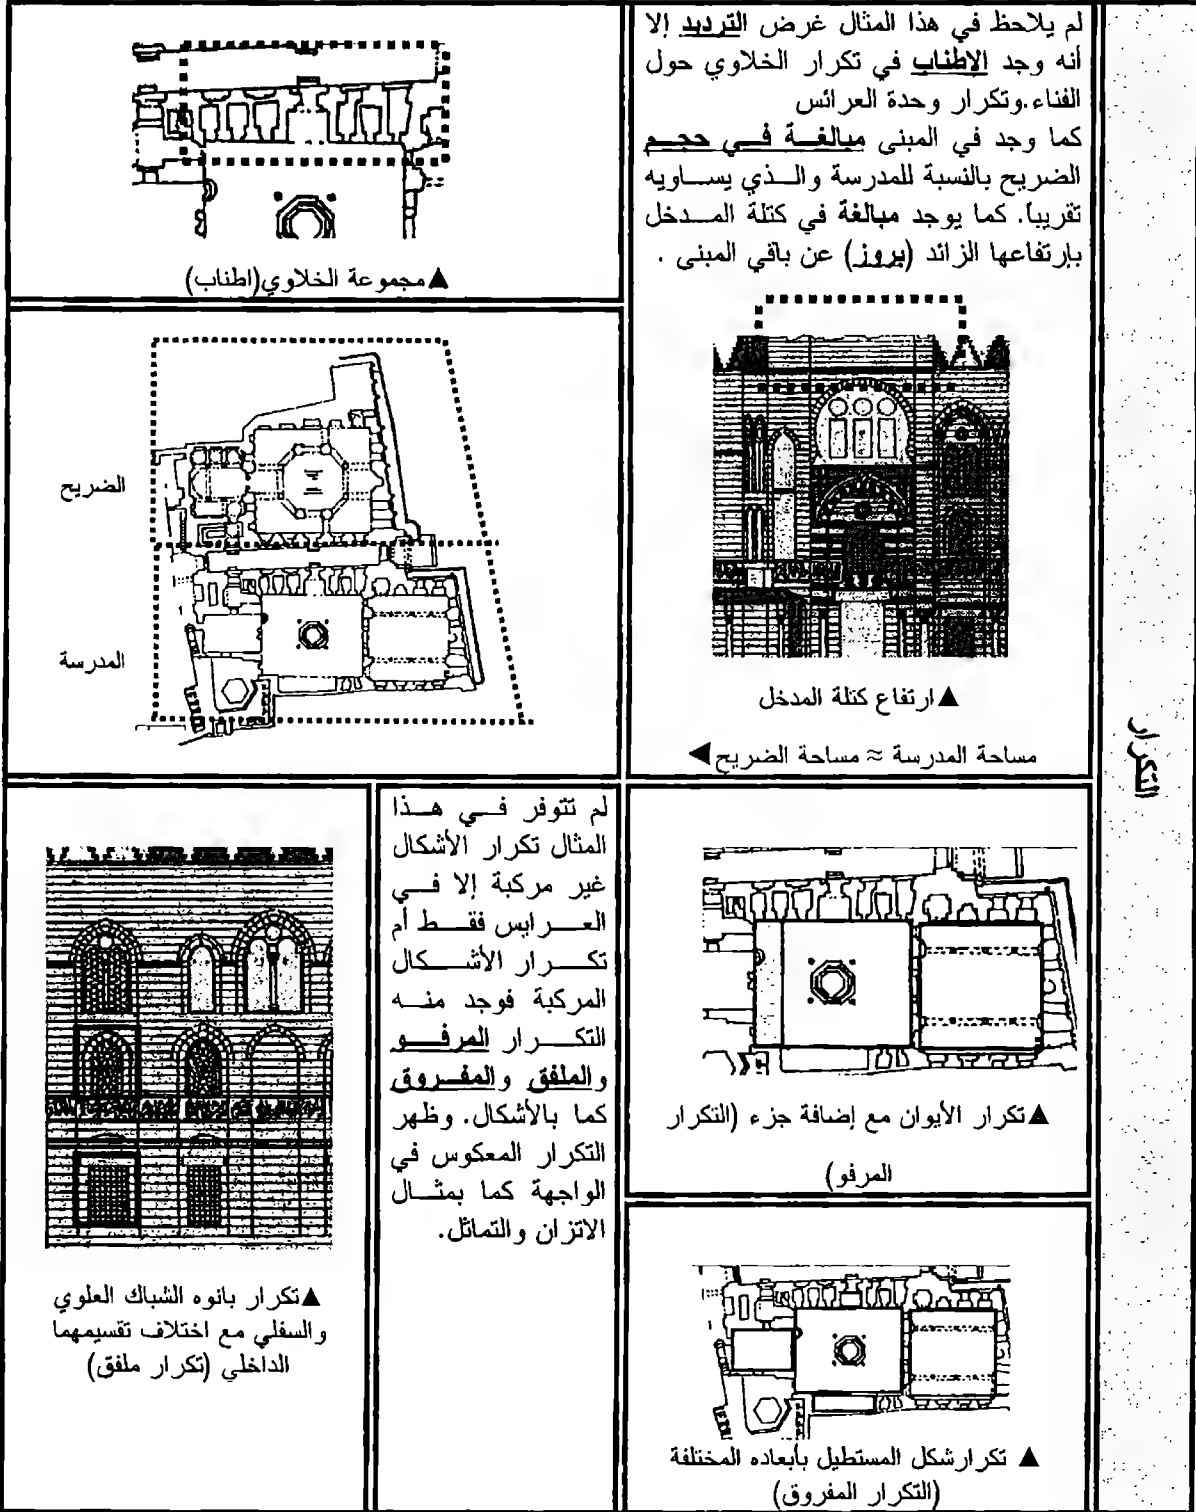 التكرار
لم يلاحظ في هذا المثال غرض الترديد إلا
أنه وجد الإطناب في تكرار الخلاوي حول
الفناء.وتكرار وحدة العرائس
كما وجد في المبنى مبالغة في حجم
الضريح بالنسبة للمدرسة والذي يساويه
تقريباً. كما يوجد مبالغة في كتلة المدخل
بإرتفاعها الزائد (بروز) عن باقي المبنى .
▲ارتفاع كتلة المدخل
مساحة المدرسة ≈ مساحة الضريح◄
▲مجموعة الخلاوي(اطناب)
الضريح
المدرسة
▲تكرار الأيوان مع إضافة جزء (التكرار
المرفو)
▲ تكرارشكل المستطيل بأبعاده المختلفة
(التكرار المفروق)
لم تتوفر في هذا
المثال تكرار الأشكال
غير مركبة إلا في
العرايس فقط أم
تكرار الأشكال
المركبة فوجد منه
التكرار المرفو
والملفق والمفروق
كما بالأشكال. وظهر
التكرار المعكوس في
الواجهة كما بمثال
الاتزان والتماثل.
▲تكرار بانوه الشباك العلوي
والسفلي مع اختلاف تقسيمهما
الداخلي (تكرار ملفق)